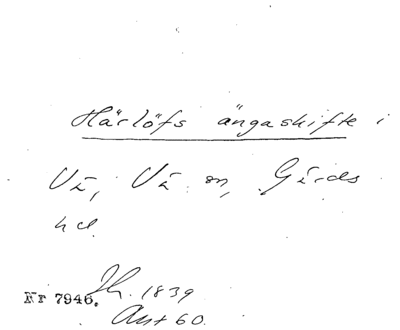 Härlöfs ängaskifte i
Vä, Vä sn, Gärds
hd.
Nr 7946. Th. 1839
Ant 60.